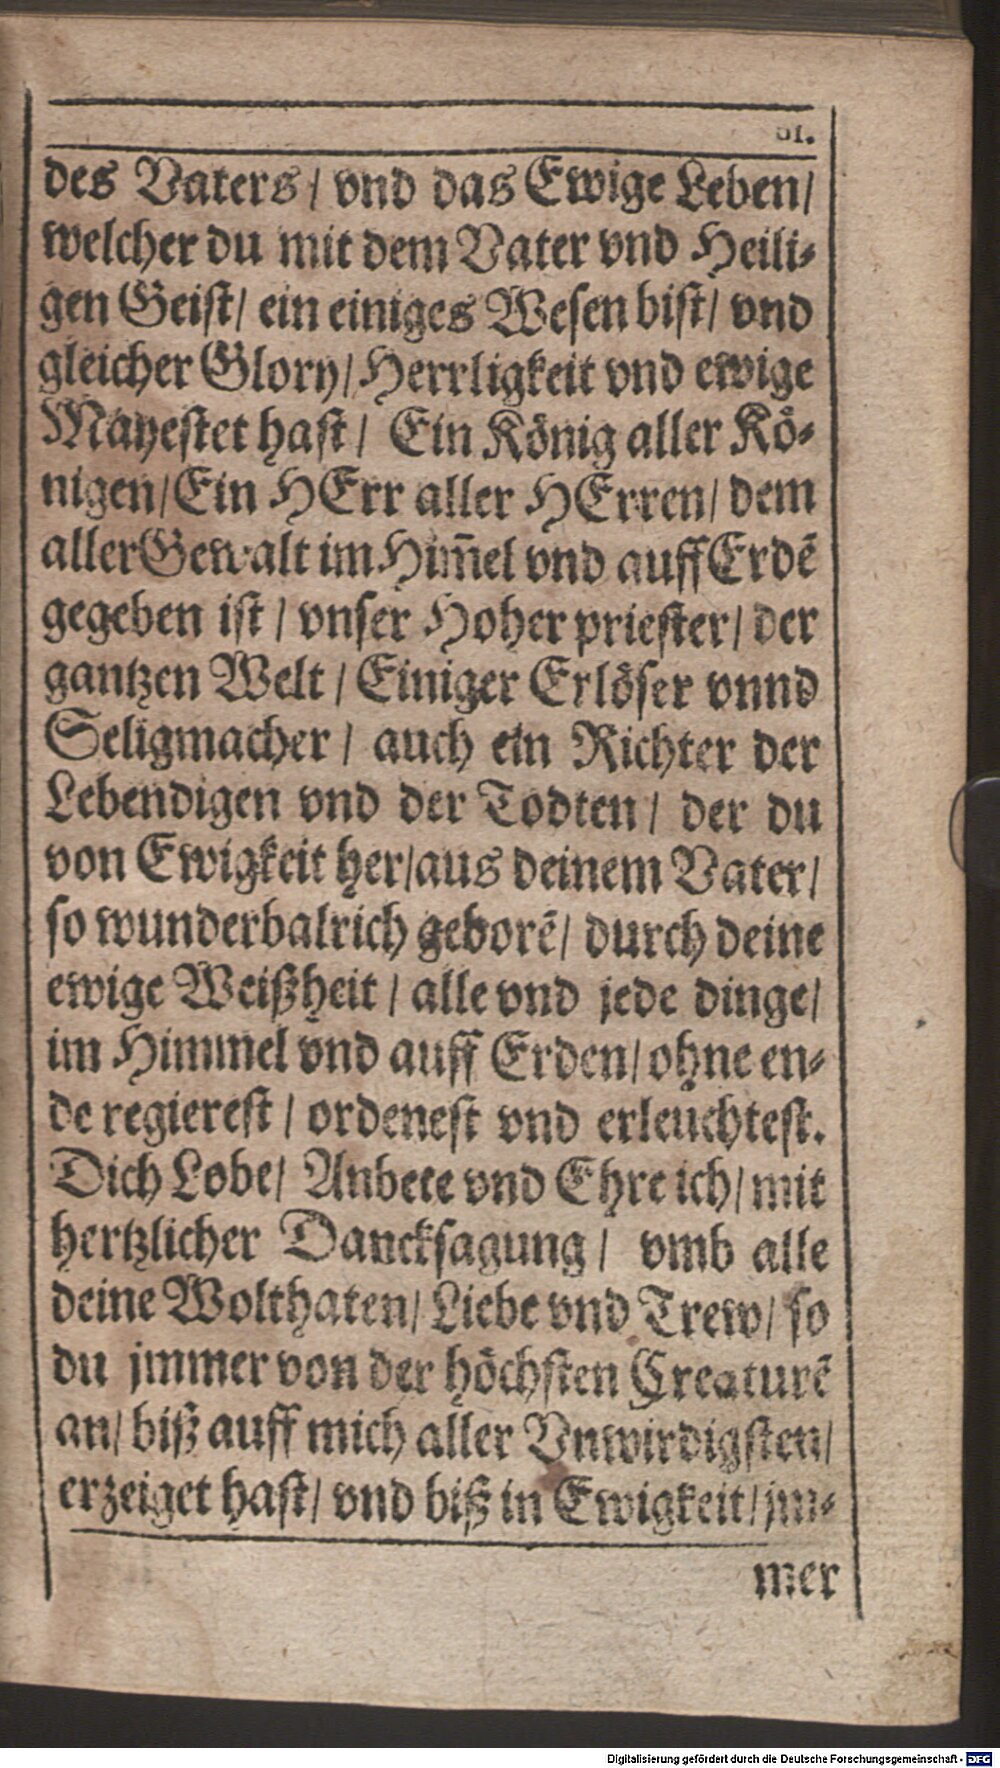 81.
des Vaters / vnd das Ewige Leben /
welcher du mit dem Vater vnd Heili-
gen Geist / ein einiges Wesen bist / vnd
gleicher Glory / Herrligkeit vnd ewige
Mayestet hast / Ein König aller Kö-
nigen / Ein HErr aller HErren / dem
aller Gewalt im Him̄el vnd auff Erdē
gegeben ist / vnser Hoher priester / der
gantzen Welt / Einiger Erlöser vnnd
Seligmacher / auch ein Richter der
Lebendigen vnd der Todten / der du
von Ewigkeit her / aus deinem Vater /
so wunderbalrich geborē / durch deine
ewige Weißheit / alle vnd jede dinge /
im Himmel vnd auff Erden / ohne en-
de regierest / ordenest vnd erleuchtest.
Dich Lobe / Anbete vnd Ehre ich / mit
hertzlicher Dancksagung / vmb alle
deine Wolthaten / Liebe vnd Trew / so
du jmmer von der höchsten Creaturē
an / biß auff mich aller Vnwirdigsten /
erzeiget hast / vnd biß in Ewigkeit / jm-
mer
Digitalisierung gefördert durch die Deutsche Forschungsgemeinschaft - DFG